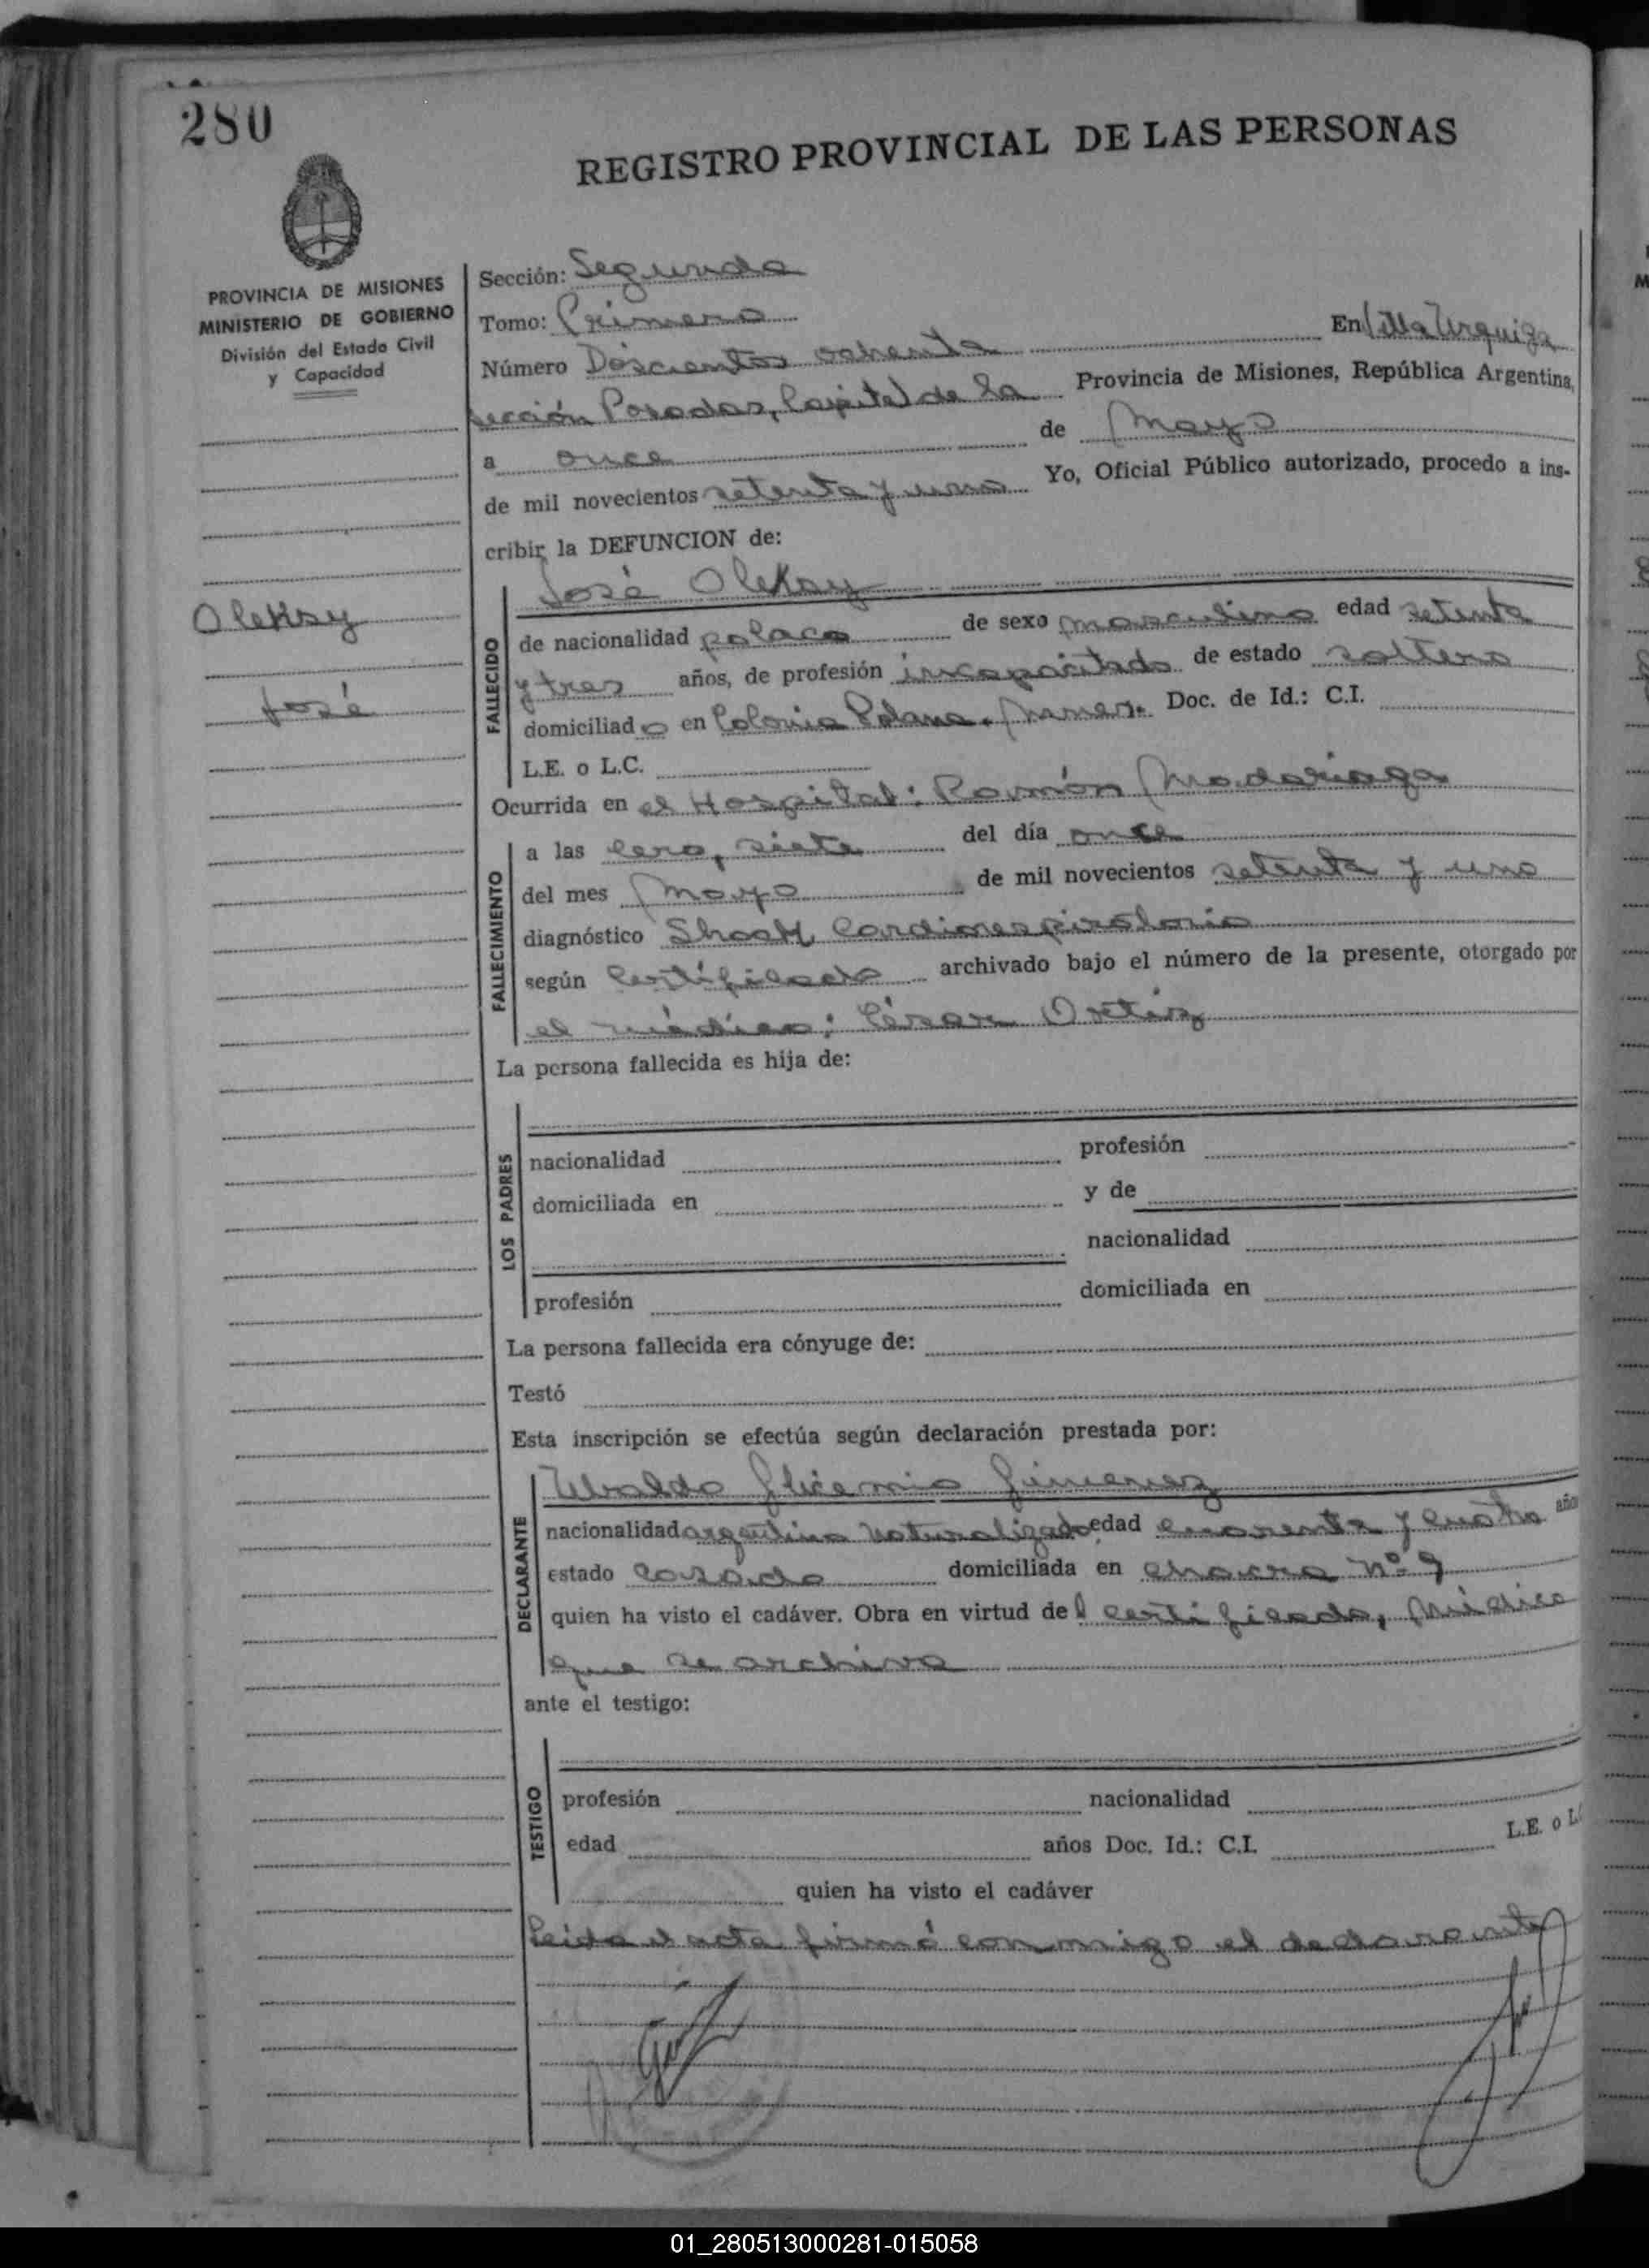 280
REGISTRO PROVINCIAL DE LAS PERSONAS
PROVINCIA DE MISIONES
MINISTERIO DE GOBIERNO
División del Estado Civil
y Capacidad
Oleksy
José
Sección: Segunda
Tomo: Primero
Número Doscientos ochenta En Villa Urquiza
Sección Posadas, Capital de la Provincia de Misiones, República Argentina,
a once de Mayo
de mil novecientos setenta y uno Yo, Oficial Público autorizado, procedo a ins-
cribir la DEFUNCION de:
José Oleksy
FALLECIDO
de nacionalidad polaca de sexo masculino edad setenta
y tres años, de profesión incapacitado de estado soltero
domiciliado en Colonia Polana. Mnes. Doc. de Id.: C.I.
L.E. o L.C.
Ocurrida en el Hospital: Ramón Madariaga
FALLECIMIENTO
a las cero, siete del día once
del mes Mayo de mil novecientos setenta y uno
diagnóstico Shock Cardiorespiratorio
según Certificado archivado bajo el número de la presente, otorgado por
el médico: César Ortiz
La persona fallecida es hija de:
LOS PADRES
nacionalidad profesión
domiciliada en y de
nacionalidad
profesión domiciliada en
La persona fallecida era cónyuge de:
Testó
Esta inscripción se efectúa según declaración prestada por:
DECLARANTE
Ubaldo Glicemio Gimenez
nacionalidad argentino naturalizado edad cuarenta y cuatro años
estado casado domiciliada en chacra nº 9
quien ha visto el cadáver. Obra en virtud del certificado, Médico
que se archiva
ante el testigo:
TESTIGO
profesión nacionalidad
edad años Doc. Id.: C.I. L.E. o L.
quien ha visto el cadáver
Leida el acta firmó conmigo el declarante
01_280513000281-015058